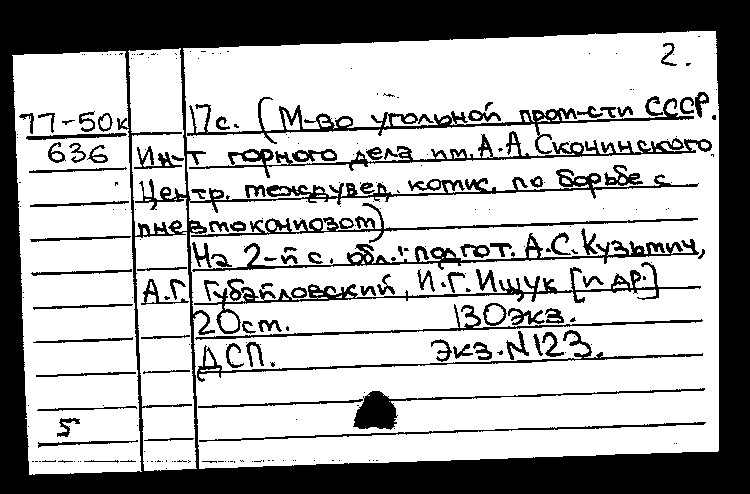 2.
77-50к 17с. (М-во угольной пром-сти СССР.
636 Ин-т горного дела им. А.А. Скочинского
Центр. междувед. комис. по борьбе с
пневмокониозом)
На 2-й с. обл.: подгот. А.С. Кузьмич,
А.Г. Губайловский, И.Г. Ищук [и др.]
20см. 130экз.
ДСП. Экз. N123.
5